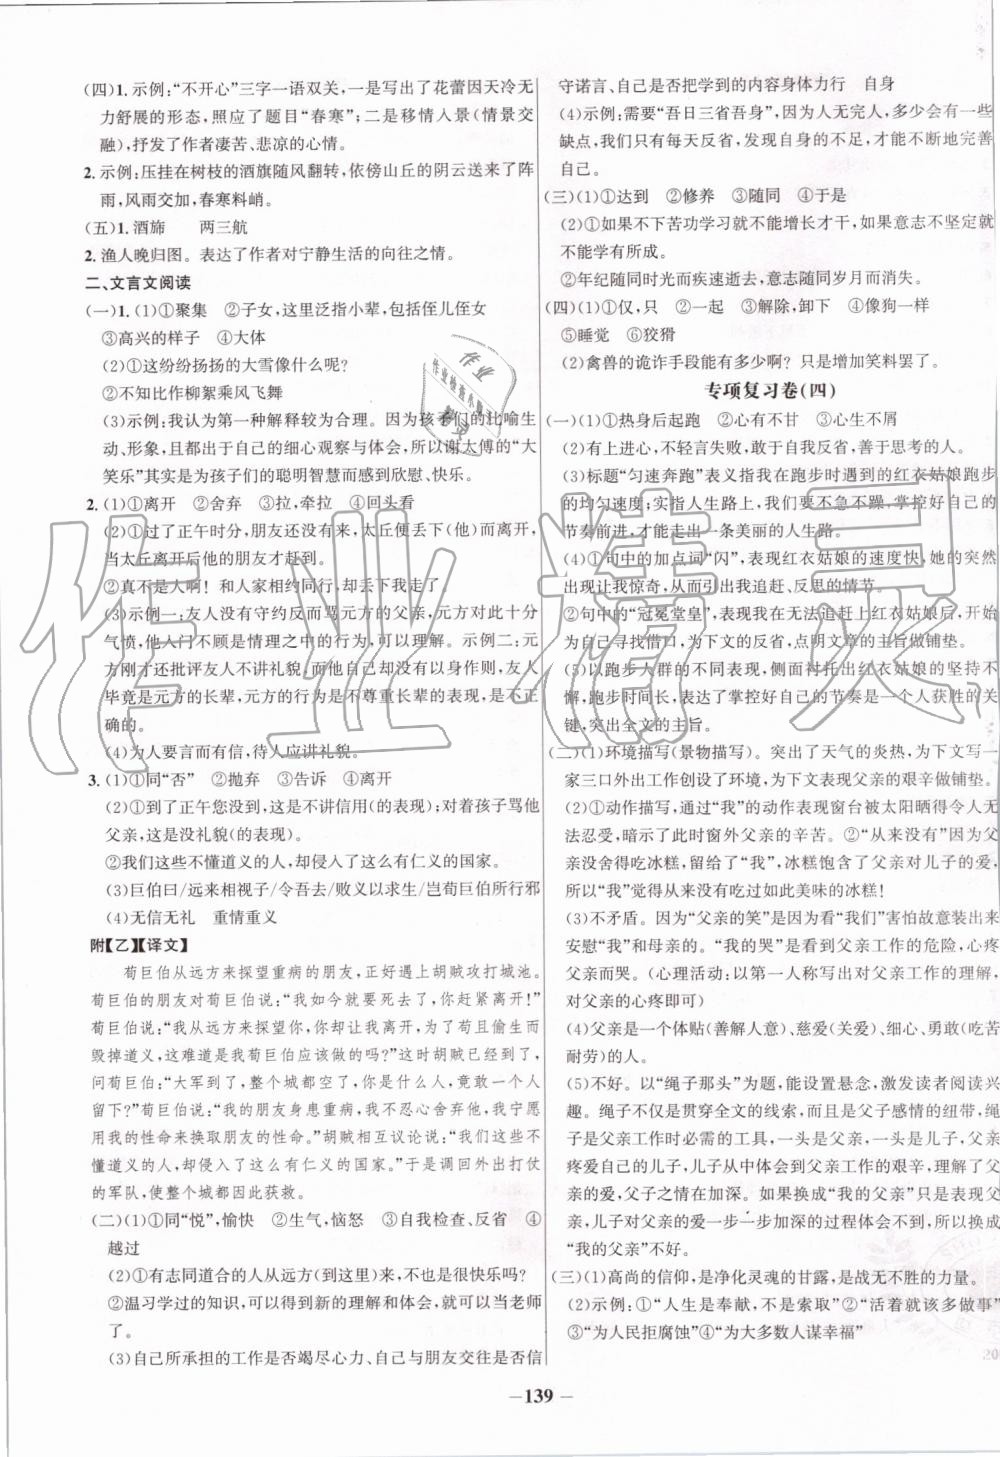 (四)1.示例:“不开心”三字一语双关,一是写出了花蕾因天冷无
力舒展的形态,照应了题目“春寒”;二是移情入景(情景交
融),抒发了作者凄苦、悲凉的心情。
2.示例:压挂在树枝的酒旗随风翻转,依傍山丘的阴云送来了阵
雨,风雨交加,春寒料峭。
(五)1.酒旆　两三航
2.渔人晚归图。表达了作者对宁静生活的向往之情。
二、文言文阅读
(一)1.(1)①聚集　②子女,这里泛指小辈,包括侄儿侄女
③高兴的样子　④大体
(2)①这纷纷扬扬的大雪像什么呢?
②不如比作柳絮乘风飞舞
(3)示例:我认为第一种解释较为合理。因为孩子们的比喻生
动、形象,且都出于自己的细心观察与体会,所以谢太傅的“大
笑乐”其实是为孩子们的聪明智慧而感到欣慰、快乐。
2.(1)①离开　②舍弃　③拉,牵拉　④回头看
(2)①过了正午时分,朋友还没有来,太丘便丢下(他)而离开,
当太丘离开后他的朋友才赶到。
②真不是人啊!和人家相约同行,却丢下我走了
(3)示例一:友人没有守约反而骂元方的父亲,元方对此十分
气愤,他入门不顾是情理之中的行为,可以理解。示例二:元
方刚才还批评友人不讲礼貌,而他自己却没有以身作则,友人
毕竟是元方的长辈,元方的行为是不尊重长辈的表现,是不正
确的。
(4)为人要言而有信,待人应讲礼貌。
3.(1)①同“否”　②抛弃　③告诉　④离开
(2)①到了正午您没到,这是不讲信用(的表现);对着孩子骂他
父亲,这是没礼貌(的表现)。
②我们这些不懂道义的人,却侵入了这么有仁义的国家。
(3)巨伯曰/远来相视子/令吾去/败义以求生/岂荀巨伯所行邪
(4)无信无礼　重情重义
附【乙】【译文】
荀巨伯从远方来探望重病的朋友,正好遇上胡贼攻打城池。
荀巨伯的朋友对荀巨伯说:“我如今就要死去了,你赶紧离开!”
荀巨伯说:“我从远方来探望你,你却让我走,为了苟且偷生而
毁掉道义,这难道是我荀巨伯应该做的吗?”这时胡贼已经到了,
问荀巨伯:“大军到了,整个城都空了,你是什么人,竟敢一个人
留下?”荀巨伯说:“我的朋友身患重病,我不忍心舍弃他,我宁愿
用我的性命来换取朋友的性命。”胡贼相互议论说:“我们这些不
懂道义的人,却侵入了这么有仁义的国家。”于是调回外出打仗
的军队,使整个城都因此获救。
(二)(1)①同“悦”,愉快　②生气,恼怒　③自我检查、反省　④
越过
(2)①有志同道合的人从远方(到这里)来,不也是很快乐吗?
②温习学过的知识,可以得到新的理解和体会,可以当老师
了。
(3)自己所承担的工作是否竭尽心力、自己与朋友交往是否信
守诺言、自己是否把学到的内容身体力行　自身
(4)示例:需要“吾日三省吾身”,因为人无完人,多多少少有一些
缺点,所以只有每天反省,发现自身的不足,才能不断地完善
自己。
(三)(1)①达到　②修养　③随同　④于是
(2)①如果不下苦功学习就不能增长才干,如果意志不坚定就
不能有所成。
②年纪随同时光而疾速逝去,意志随同岁月而消失。
(四)(1)①仅,只　②一起　③解除,卸下　④像狗一样
⑤睡觉　⑥狡猾
(2)禽兽的诡诈手段能有多少啊?只是增加笑料罢了。
专项复习卷(四)
(一)(1)①热身后起跑　②心有不甘　③心生不屑
(2)有上进心,不轻言失败,敢于自我反省,善于思考的人。
(3)标题“匀速奔跑”表义指我在跑步时遇到的红衣姑娘跑步
的均匀速度;实指人生路上,我们要不急不躁,掌控好自己的
节奏前进,才能走出一条美丽的人生路。
(4)①句中的加点词“闪”,表现红衣姑娘的速度快,她的突然
出现让我惊奇,从而引出我追赶、反思的情节。
②句中的“冠冕堂皇”,表现我在无法追赶上红衣姑娘后,开始
为自己寻找借口,为下文的反省,点明文章的主旨做铺垫。
(5)以跑步人群的不同表现,侧面衬托出红衣姑娘的坚持不
懈,跑步时间长,表达了掌控好自己的节奏是一个人获胜的关
键,突出全文的主旨。
(二)(1)环境描写(景物描写)。突出了天气的炎热,为下文写一
家三口外出工作创设了环境,为下文表现父亲的艰辛做铺垫。
(2)①动作描写,通过“我”的动作表现窗台被太阳晒得令人无
法忍受,暗示了此时窗外父亲的辛苦。②“从来没有”因为父
亲没舍得吃冰糕,留给了“我”,冰糕饱含了父亲对儿子的爱,
所以“我”觉得从来没有吃过如此美味的冰糕!
(3)不矛盾。因为“父亲的笑”是为了看到“我们”害怕故意装出来
安慰“我”和母亲的。“我的哭”是看到父亲工作的危险,心疼
父亲而哭。(心理活动:以第一人称写出对父亲工作的理解,
对父亲的心疼即可)
(4)父亲是一个体贴(善解人意)、慈爱(关爱)、细心、勇敢(吃苦
耐劳)的人。
(5)不好。以“绳子那头”为题,能设置悬念,激发读者阅读兴
趣。绳子不仅是贯穿全文的线索,而且是父子感情的纽带,绳
子是父亲工作时必需的工具,一头是父亲,一头是儿子,父亲
疼爱自己的儿子,儿子从中体会到父亲工作的艰辛,理解了父
爱,父子之情在加深。如果换成“我的父亲”只是表现父
亲,儿子对父亲的爱一步一步加深的过程体会不到,所以换成
“我的父亲”不好。
(三)(1)高尚的信仰,是净化灵魂的甘露,是战无不胜的力量。
(2)示例:①“人生是奉献,不是索取”②“活着就该多做事”
③“为人民拒腐蚀”④“为大多数人谋幸福”
—139—
作业精灵